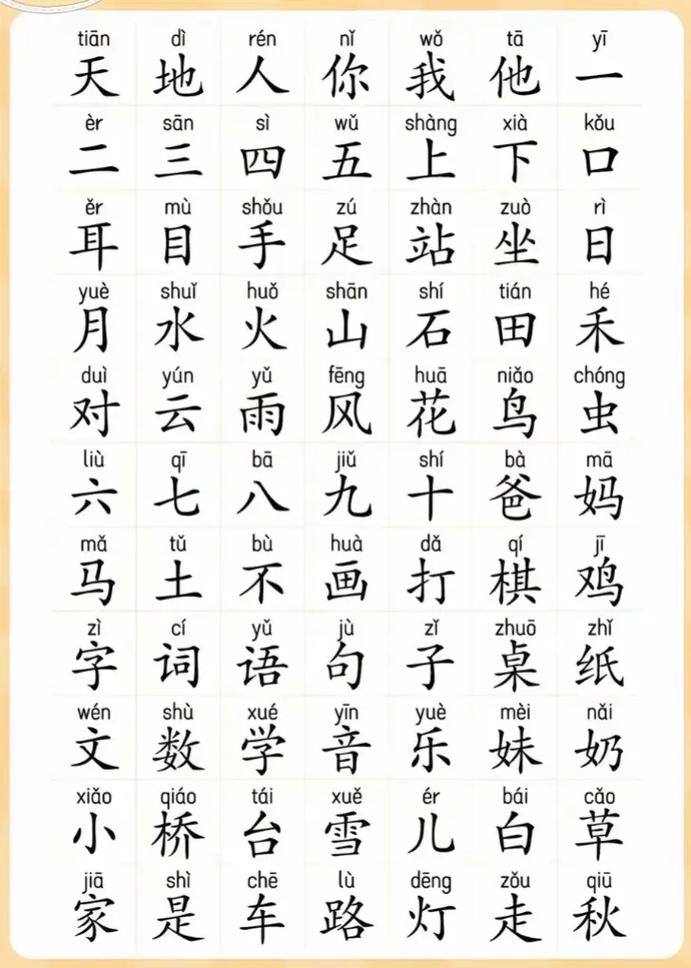 tiān dì rén nǐ wǒ tā yī
天 地 人 你 我 他 一
èr sān sì wǔ shàng xià kǒu
二 三 四 五 上 下 口
ěr mù shǒu zú zhàn zuò rì
耳 目 手 足 站 坐 日
yuè shuǐ huǒ shān shí tián hé
月 水 火 山 石 田 禾
duì yún yǔ fēng huā niǎo chóng
对 云 雨 风 花 鸟 虫
liù qī bā jiǔ shí bà mā
六 七 八 九 十 爸 妈
mǎ tǔ bù huà dǎ qí jī
马 土 不 画 打 棋 鸡
zì cí yǔ jù zǐ zhuō zhǐ
字 词 语 句 子 桌 纸
wén shù xué yīn yuè mèi nǎi
文 数 学 音 乐 妹 奶
xiǎo qiáo tái xuě ér bái cǎo
小 桥 台 雪 儿 白 草
jiā shì chē lù dēng zǒu qiū
家 是 车 路 灯 走 秋